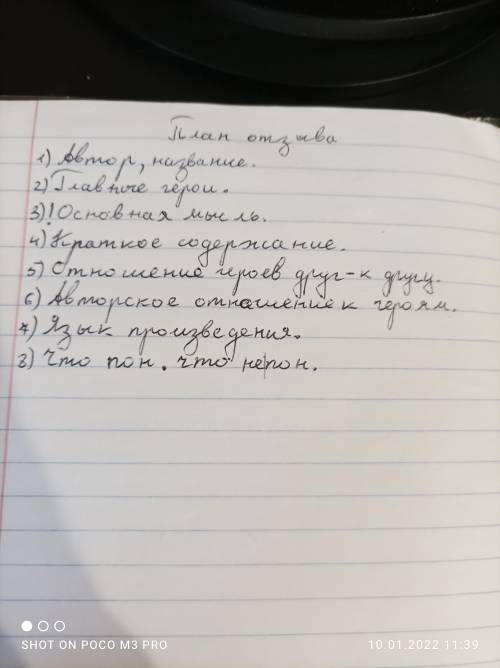 План отзыва
1) Автор, название.
2) Главные герои.
3)! Основная мысль.
4) Краткое содержание.
5) Отношение героев друг-к другу.
6) Авторское отношение к героям.
7) Язык произведения.
8) Что пон. что непон.
SHOT ON POCO M3 PRO
10.01.2022 11:39